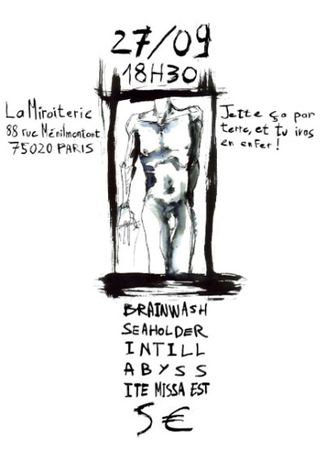 27/09
18H30
La Miroiterie
88 rue Ménilmontant
75020 PARIS
Jette ça par
terre, et tu iras
en enfer!
BRAINWASH
SEAHOLDER
INTILL
ABYSS
ITE MISSA EST
5€